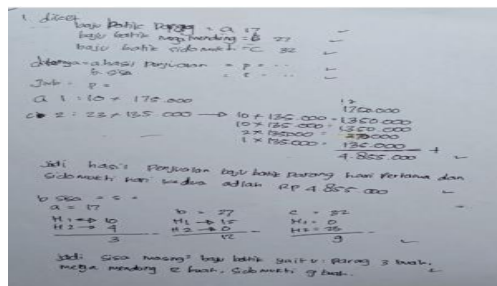 1. diket
baju batik Parang = a 17
baju batik mega mendung = b 27
baju batik sidomukti = c 32
ditanya = a. hasil Penjualan = p = ...
b. sisa = s = ...
Jwb = P =
a 1 : 10 × 175.000
1750.000
c 2 : 23 × 135.000 → 10 × 135.000 = 1.350.000
10 × 135.000 = 1.350.000
2 × 135.000 = 270.000
1 × 135.000 = 135.000 +
4.855.000
Jadi hasil Penjualan baju batik Parang hari Pertama dan
Sidomukti hari kedua adlah RP 4.855.000
b sisa = s =
a = 17 b = 27 c = 32
H1 → 10 H1 → 15 H1 = 0
H2 → 4 H2 → 0 H2 =
3 12 9
Jadi Sisa masing² baju batik yaitu : Parang 3 buah,
mega mendung buah, Sidomukti 9 buah.